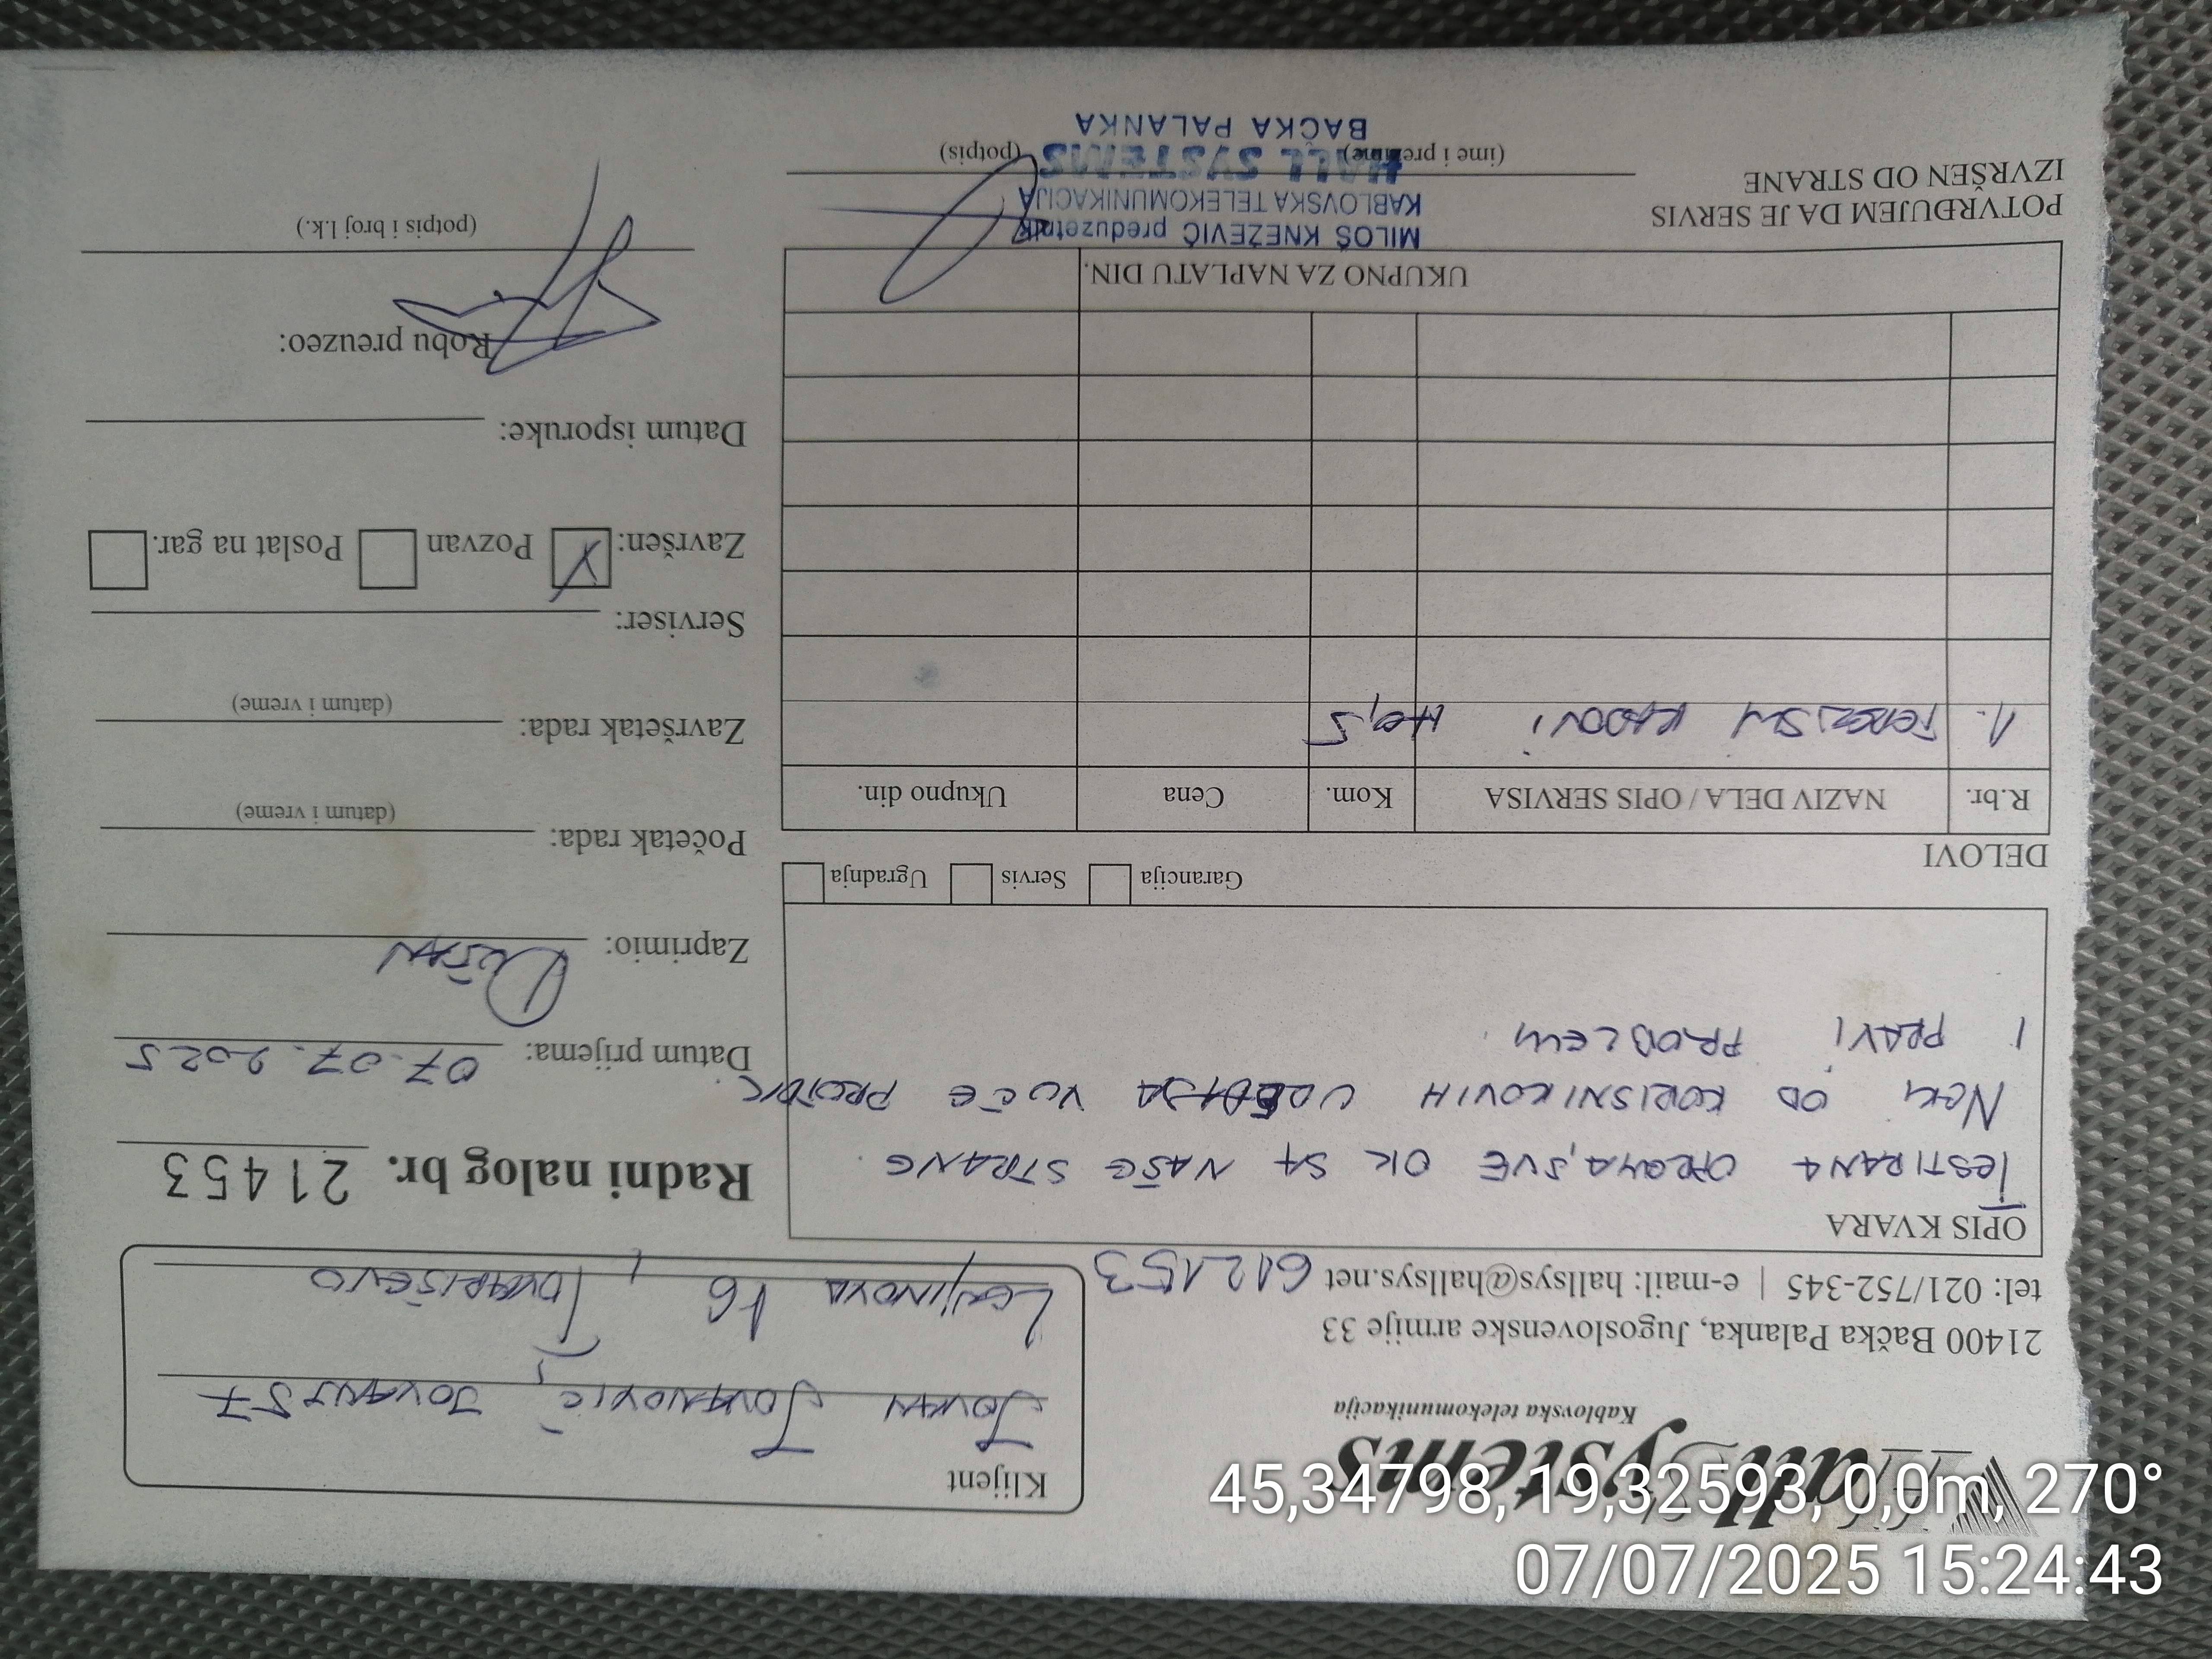 Hall Systems
Kablovska telekomunikacija
21400 Bačka Palanka, Jugoslovenske armije 33
tel: 021/752-345 | e-mail: hallsys@hallsys.net 612153
Klijent
JOVAN JOVANOVIĆ, JOVANJ57
LENJINOVA 16, TOVARIŠEVO
OPIS KVARA
TESTIRANA OPREMA, SVE OK SA NAŠE STRANE.
NEKI OD KORISNIKOVIH UREĐAJA VUČE PROTOK
I PRAVI PROBLEM
Garancija
Servis
Ugradnja
DELOVI
R.br. NAZIV DELA / OPIS SERVISA Kom. Cena Ukupno din.
1. TERENSKI RADOVI H0,5
UKUPNO ZA NAPLATU DIN.
POTVRĐUJEM DA JE SERVIS
IZVRŠEN OD STRANE
(ime i prezime)
(potpis)
MILOŠ KNEŽEVIĆ preduzetnik
KABLOVSKA TELEKOMUNIKACIJA
HALL SYSTEMS
BAČKA PALANKA
Radni nalog br. 21453
Datum prijema: 07.07.2025
Zaprimio: DUŠAN
Početak rada:
(datum i vreme)
Završetak rada:
(datum i vreme)
Serviser:
Završen: X Pozvan Poslat na gar.
Datum isporuke:
Robu preuzeo:
(potpis i broj l.k.)
45,34798, 19,32593, 0,0m, 270°
07/07/2025 15:24:43